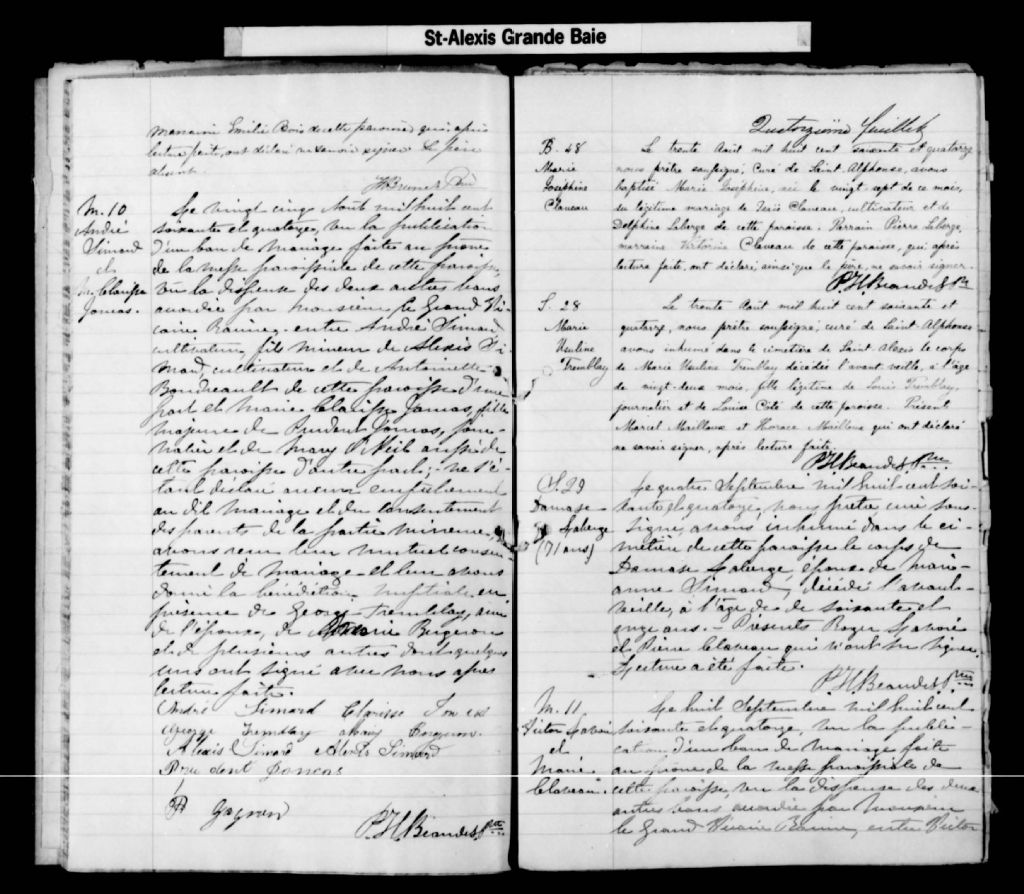 St-Alexis Grande Baie
marraine Emilie Bois de cette paroisse qui, après
lecture faite, ont déclaré ne savoir signer. Le père
absent.
M. 10
André
Simard
et
M. Clarisse
Jomas.
Le vingt cinq Août mil huit cent
soixante et quatorze, vu la publication
d'un ban de mariage faite au prône
de la messe paroissiale de cette paroisse,
vu la dispense des deux autres bans
accordée par monsieur le Grand Vi-
caire Racine, entre André Simard
cultivateur, fils mineur de Alexis Si-
mard, cultivateur et de Antoinette
Boudreault de cette paroisse d'une
part et Marie Clarisse Jomas, fille
majeure de Prudent Jomas, jour-
nalier et de Mary O'Neil aussi de
cette paroisse d'autre part; ne s'é-
tant déclaré aucun empêchement
au dit mariage et du consentement
des parents de la partie mineure,
avons reçu leur mutuel consen-
tement de mariage et leur avons
donné la bénédiction nuptiale en
présence de George Tremblay, ami
de l'époux, de Bergeron
et de plusieurs autres dont quelques
uns ont signé avec nous après
lecture faite.
André Simard Clarisse
George Tremblay
Alexis Simard Simard
Prudent
Gagnon
P.H. Beaudet Ptre
Quatorzième Juillet
B. 48
Marie
Joséphine
Claveau
Le trente Août mil huit cent soixante et quatorze
nous prêtre soussigné, curé de Saint-Alphonse, avons
baptisé Marie Joséphine, née le vingt sept de ce mois,
du légitime mariage de Claveau, cultivateur et de
Delphine Laberge de cette paroisse. Parrain Pierre Laberge,
marraine Victorine Claveau de cette paroisse, qui, après
lecture faite, ont déclaré, ainsi que le père, ne savoir signer.
P.H. Beaudet Ptre
S. 28
Marie
Usuline
Tremblay
Le trente Août mil huit cent soixante et
quatorze, nous prêtre soussigné, curé de Saint-Alphonse
avons inhumé dans le cimetière de Saint Alexis le corps
de Marie Usuline Tremblay décédée l'avant veille, à l'âge
de vingt-deux mois, fille légitime de Louis Tremblay,
journalier et de Louise Coté de cette paroisse. Présent
Marcel Mailloux et Horace Mailloux qui ont déclaré
ne savoir signer, après lecture faite.
P.H. Beaudet Ptre
S. 29
Damase
Laberge
(71 ans)
Le quatre Septembre mil huit cent soi-
xante et quatorze, nous prêtre curé sous-
signé, avons inhumé dans le ci-
metière de cette paroisse le corps de
Damase Laberge, époux de Marie-
anne Simard, décédé l'avant
veille, à l'âge de de soixante et
onze ans. - Présents Roger Savoie
et Pierre Claveau qui n'ont su signer.
Lecture a été faite.
P.H. Beaudet Ptre
M. 11
Victor Savoie
et
Marie
Claveau.
Le huit Septembre mil huit cent
soixante et quatorze, vu la publi-
cation d'un ban de mariage faite
au prône de la messe paroissiale de
cette paroisse, vu la dispense des deux
autres bans accordée par Monsieur
le Grand Vicaire Racine, entre Victor